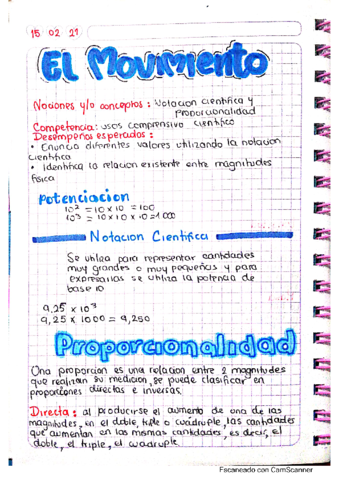 15 02 21
El Movimiento
Nociones y/o conceptos: Notacion cientifica y
proporcionalidad
Competencia: usos comprensivo cientifico
Desempeños esperados:
• Enuncio diferentes valores utilizando la notacion
cientifica
• Identifica la relacion existente entre magnitudes
fisica
Potenciacion
10² = 10 x 10 = 100
10³ = 10 x 10 x 10 = 1.000
Notacion Cientifica
Se utiliza para representar cantidades
muy grandes o muy pequeñas y para
expresarlas se utiliza la potencia de
base 10
9,25 x 10³
9,25 x 1000 = 9,250
Proporcionalidad
Una proporcion es una relacion entre 2 magnitudes
que realizan su medicion, se puede clasificar en
proporciones directas e inversas.
Directa: al producirse el aumento de una de las
magnitudes, en el doble, triple o cuadruple, las cantidades
que aumentan en las mismas cantidades, es decir, el
doble, el triple, el cuadruple
Escaneado con CamScanner